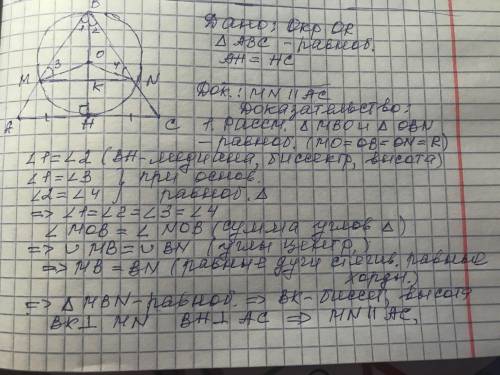 B
1 2
O
3 4
M K N
A H C
Дано: Окр OR
△ABC - равноб.
AH = HC
Док.: MN || AC
Доказательство:
1. Рассм. △MBO и △OBN
- равноб. (MO=OB=ON=R)
∠1=∠2 (BH-медиана, биссектр, высота)
∠1=∠3 } при основ.
∠2=∠4 } равноб. △
=> ∠1=∠2=∠3=∠4
∠MOB = ∠NOB (сумма углов △)
=> ∪MB = ∪BN (углы центр.)
=> MB = BN (равные дуги стягив. равные
хорды)
=> △MBN-равноб. => BK-биссект, высота
BK⊥MN BH⊥AC => MN || AC.